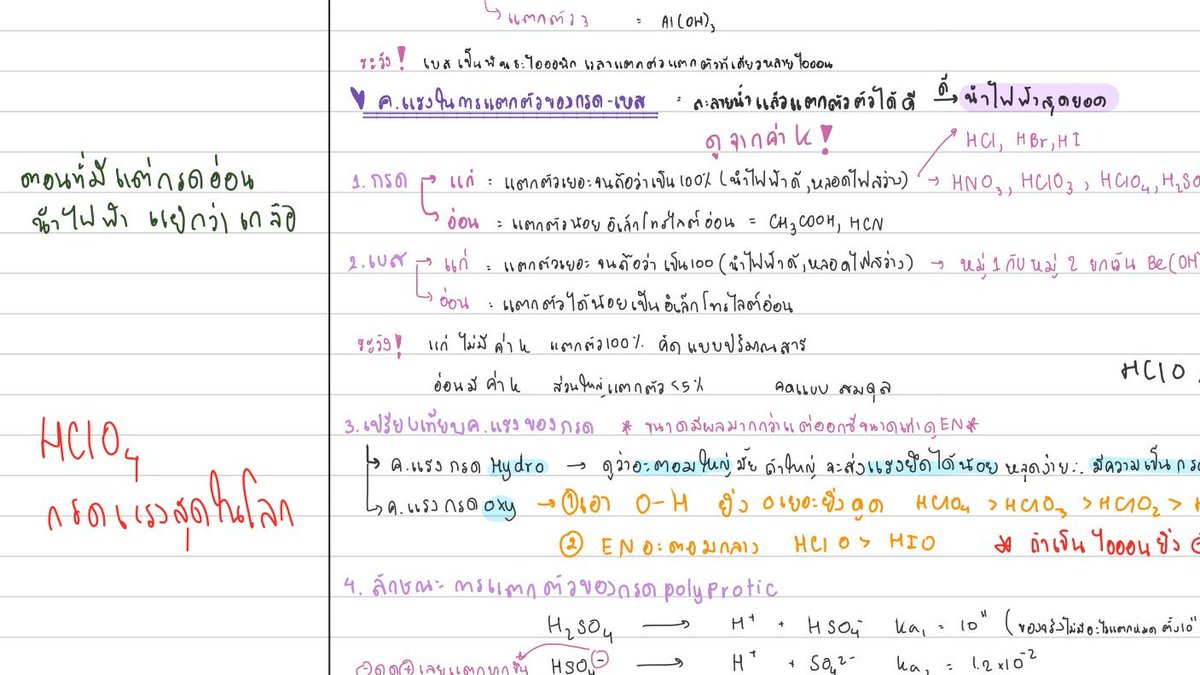 แตกตัว 3 : Al(OH)3
ระวัง! เบสเป็นพันธะไอออนิก เวลาแตกตัวแตกตัวทีเดียวหลายไอออน
ค.แรงในการแตกตัวของกรด-เบส : ละลายน้ำแล้วแตกตัวตัวได้ดี ดี→ นำไฟฟ้าสุดยอด
ดูจากค่า K!
HCl, HBr, HI
ตอนที่มีแต่กรดอ่อน
นำไฟฟ้า แย่กว่า เกลือ
1. กรด → แก่ = แตกตัวเยอะจนถือว่าเป็น 100% (นำไฟฟ้าดี, หลอดไฟสว่าง) → HNO3, HClO3, HClO4, H2SO
อ่อน = แตกตัวน้อย อิเล็กโทรไลต์อ่อน = CH3COOH, HCN
2. เบส → แก่ = แตกตัวเยอะ จนถือว่า เป็น 100 (นำไฟฟ้าดี, หลอดไฟสว่าง) → หมู่ 1 กับ หมู่ 2 ยกเว้น Be(OH)
อ่อน : แตกตัวได้น้อยเป็นอิเล็กโทรไลต์อ่อน
ระวัง! แก่ ไม่มี ค่า K แตกตัว 100% คิดแบบปริมาณสาร
อ่อนมี ค่า K ส่วนใหญ่แตกตัว <5% คิดแบบ สมดุล
HClO
HClO4
กรดแรงสุดในโลก
3. เปรียบเทียบ ค.แรงของกรด * ขนาดมีผลมากกว่าแต่ออกซีขนาดเท่าดู EN *
ค.แรง กรด Hydro → ดูว่าอะตอมใหญ่มั้ย ถ้าใหญ่ จะส่งแรงยึดได้น้อย หลุดง่าย ∴ มีความเป็น กร
ค.แรง กรด oxy → ① เอา O-H ยิ่ง O เยอะยิ่งดูด HClO4 > HClO3 > HClO2 >
② EN อะตอมกลาง HClO > HIO * ถ้าเป็นไอออนยิ่ง
4. ลักษณะ การแตกตัวของกรด polyprotic
H2SO4 → H+ + HSO4- Ka1 = 10" (ของจริงไม่มีอะไรแตกหมด ตั้ง 10"
⊖ดูด⊕เลยแตกยากขึ้น HSO4⊖ → H+ + SO4 2- Ka2 = 1.2×10-2